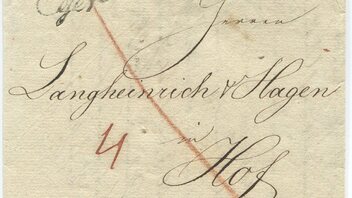 Herrn
Langheinrich & Hagen
4
in
Hof